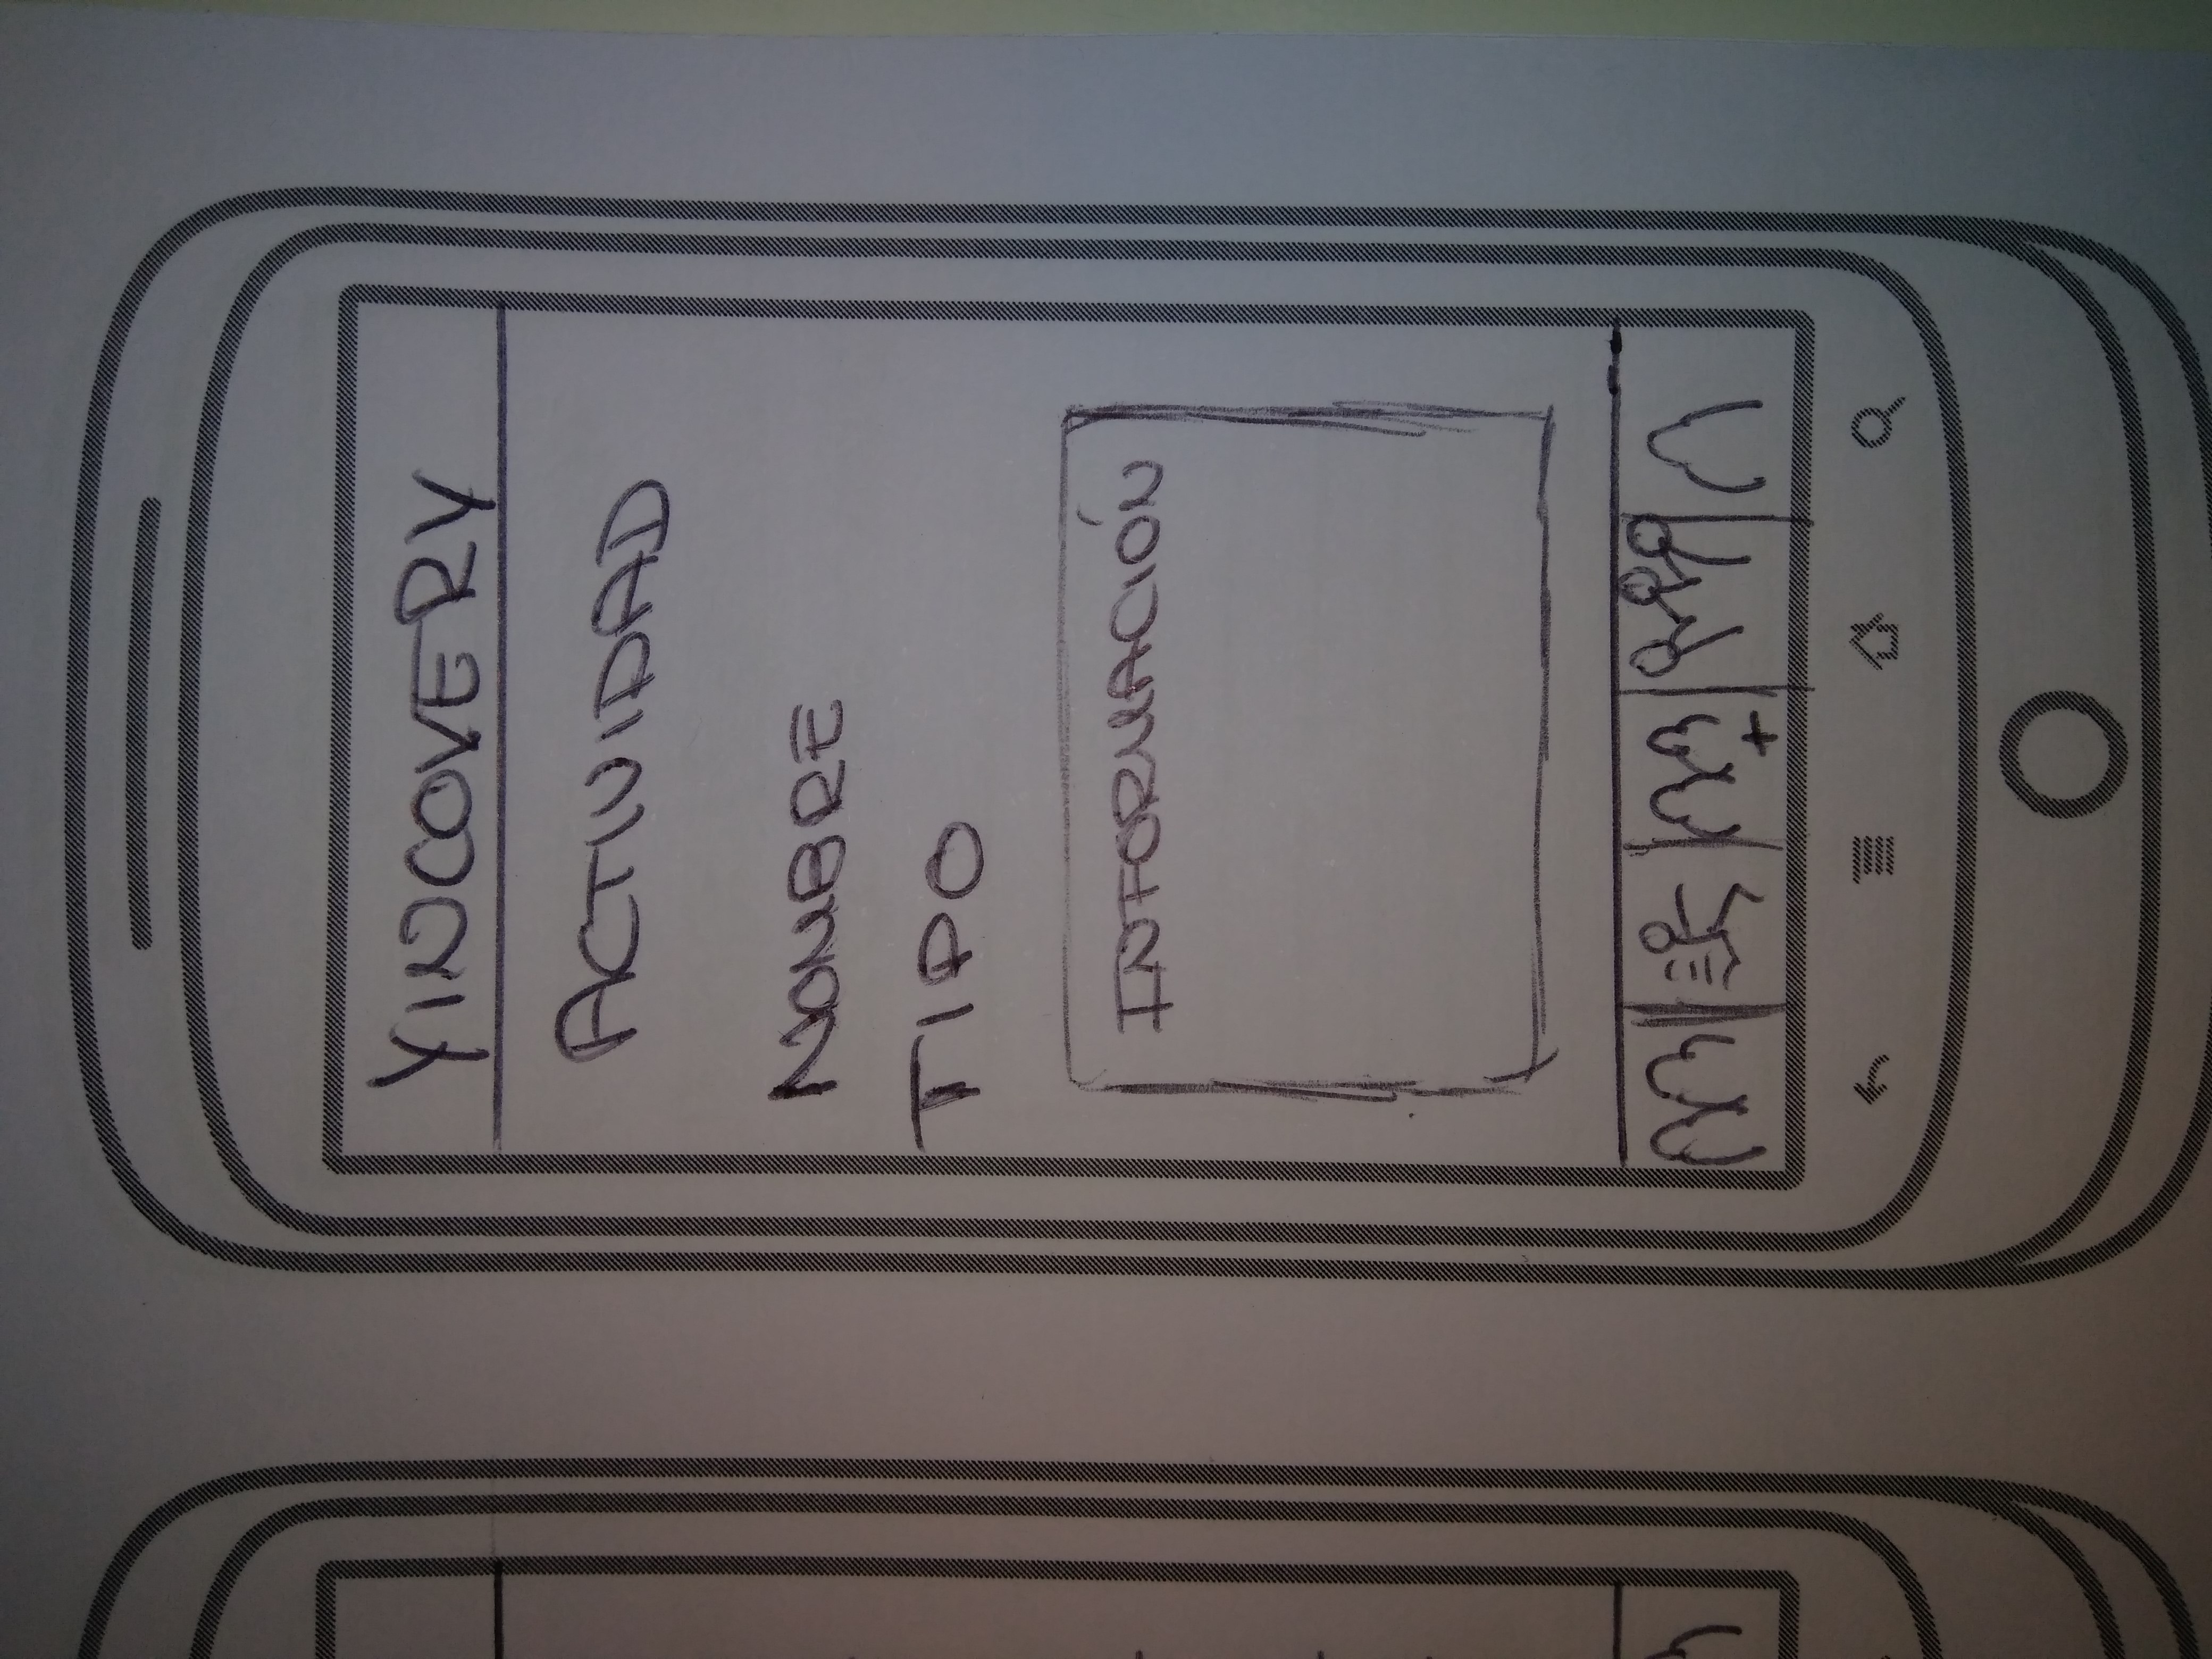 YINCOVERY
ACTIVIDAD
NOMBRE
TIPO
INFORMACIÓN
+